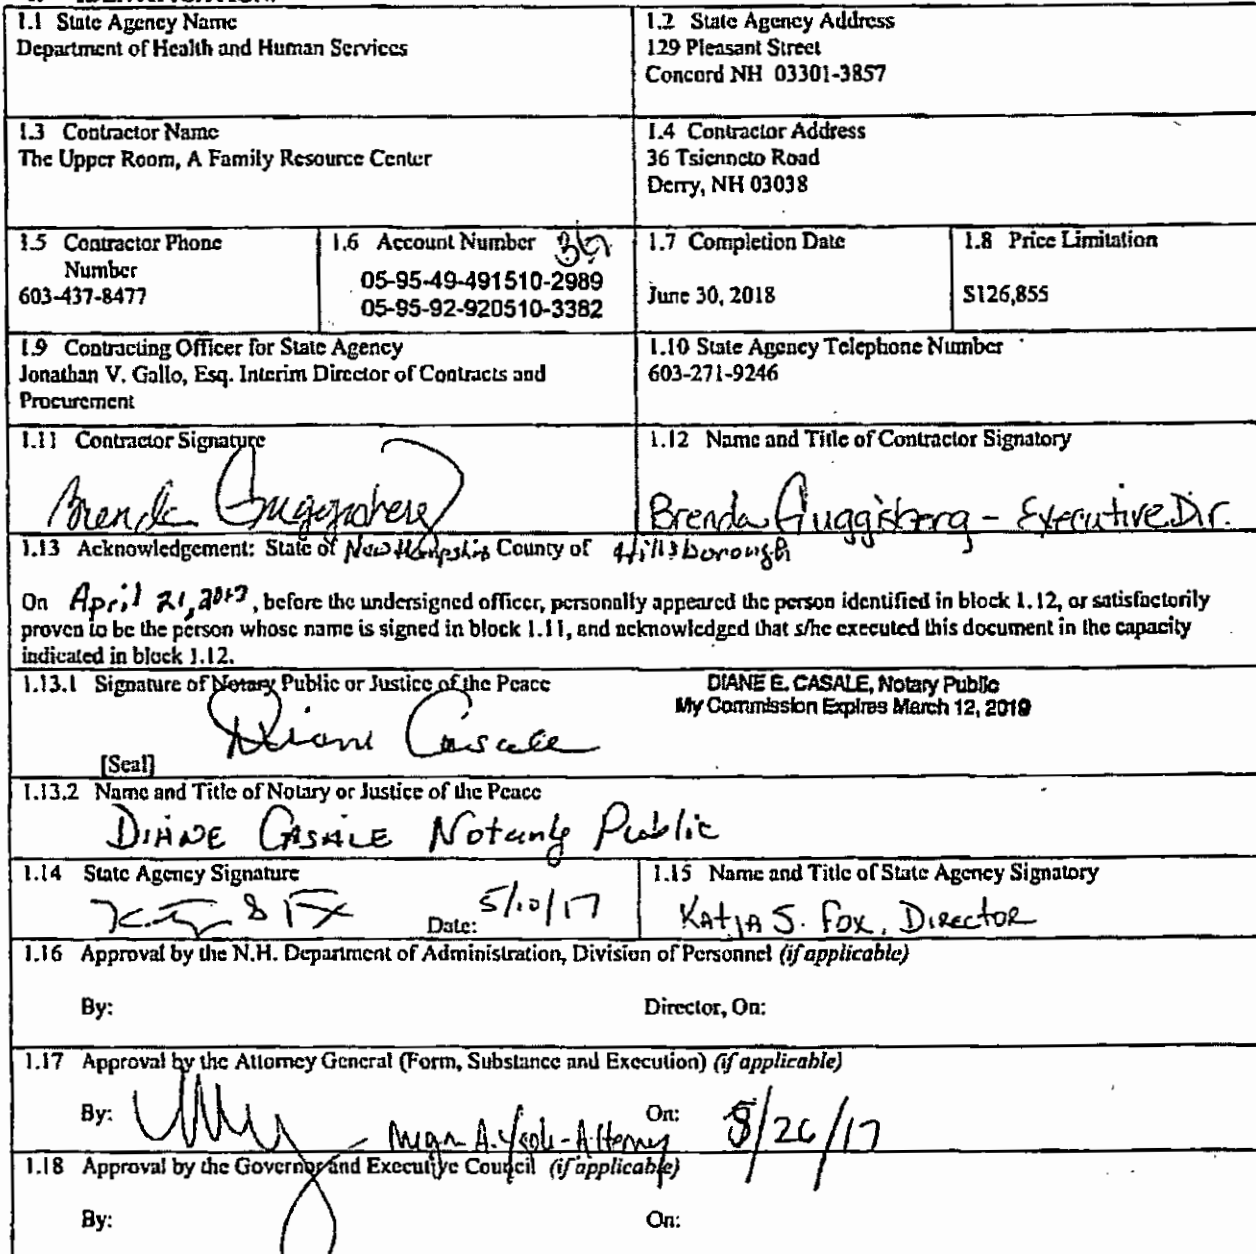 1.1 State Agency Name
Department of Health and Human Services
1.2 State Agency Address
129 Pleasant Street
Concord NH 03301-3857
1.3 Contractor Name
The Upper Room, A Family Resource Center
1.4 Contractor Address
36 Tsienneto Road
Derry, NH 03038
1.5 Contractor Phone
Number
603-437-8477
1.6 Account Number
05-95-49-491510-2989
05-95-92-920510-3382
1.7 Completion Date
June 30, 2018
1.8 Price Limitation
$126,855
1.9 Contracting Officer for State Agency
Jonathan V. Gallo, Esq. Interim Director of Contracts and
Procurement
1.10 State Agency Telephone Number
603-271-9246
1.11 Contractor Signature
Brenda Guggisberg
1.12 Name and Title of Contractor Signatory
Brenda Guggisberg - Executive Dir.
1.13 Acknowledgement: State of New Hampshire County of Hillsborough
On April 21, 2017, before the undersigned officer, personally appeared the person identified in block 1.12, or satisfactorily
proven to be the person whose name is signed in block 1.11, and acknowledged that s/he executed this document in the capacity
indicated in block 1.12.
1.13.1 Signature of Notary Public or Justice of the Peace
DIANE E. CASALE, Notary Public
My Commission Expires March 12, 2019
Diane Casale
[Seal]
1.13.2 Name and Title of Notary or Justice of the Peace
DIANE CASALE Notary Public
1.14 State Agency Signature
Date: 5/10/17
1.15 Name and Title of State Agency Signatory
Katja S. Fox, Director
1.16 Approval by the N.H. Department of Administration, Division of Personnel (if applicable)
By: Director, On:
1.17 Approval by the Attorney General (Form, Substance and Execution) (if applicable)
By: - Attorney On: 5/26/17
1.18 Approval by the Governor and Executive Council (if applicable)
By: On: